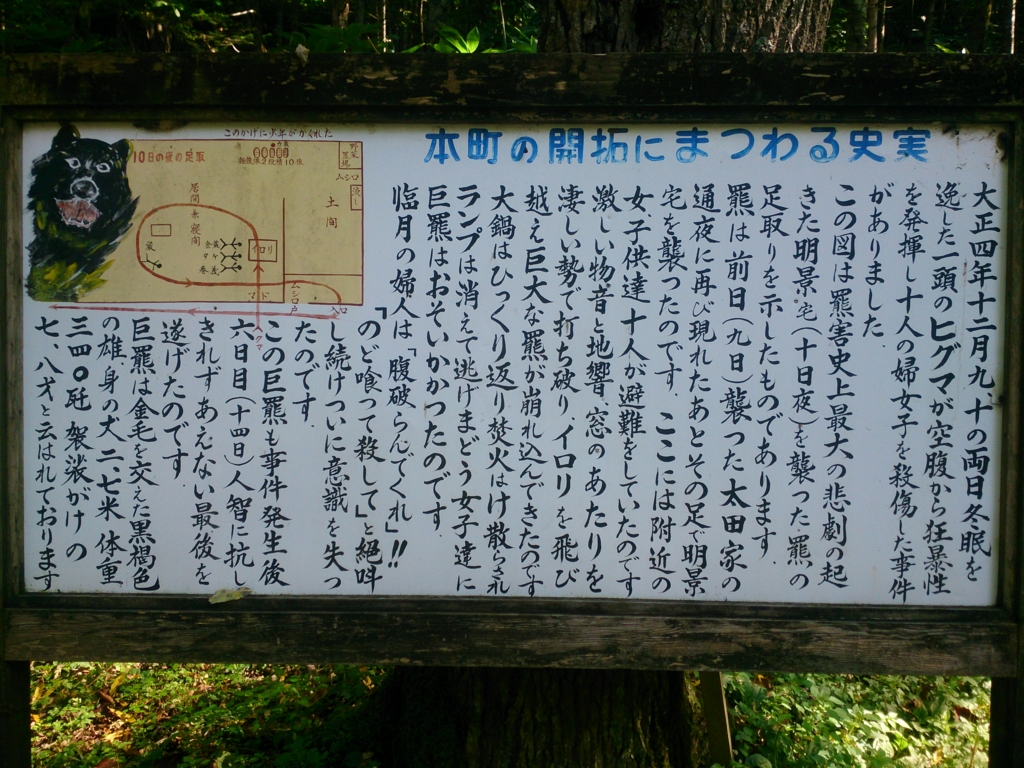 本町の開拓にまつわる史実
大正四年十二月九、十の両日冬眠を
逸した一頭のヒグマが空腹から狂暴性
を発揮し十人の婦女子を殺傷した事件
がありました
この図は羆害史上最大の悲劇の起
きた明景宅(十日夜)を襲った羆の
足取りを示したものであります
羆は前日(九日)襲った太田家の
通夜に再び現れたあとその足で明景
宅を襲ったのです ここには附近の
女、子供達、十人が避難をしていたのです
激しい物音と地響、窓のあたりを
凄しい勢で打ち破り、イロリを飛び
越え巨大な羆が崩れ込んできたのです
大鍋はひっくり返り焚火はけ散らされ
ランプは消えて逃げまどう女子達に
巨羆はおそいかかつたのです
臨月の婦人は「腹破らんでくれ」!!
「のど喰って殺して」と絶叫
し続けついに意識を失っ
たのです
この巨羆も事件発生後
六日目(十四日)人智に抗し
きれずあえない最後を
遂げたのです
巨羆は金毛を交えた黒褐色
の雄、身の丈二、七米 体重
三四〇瓩 袈裟がけの
七、八才と云はれております
このかげに少年がかくれた
10日の夜の足取
野菜置場
ムシロ
流し
土間
居間兼寝間
イロリ
マド
ムシロ戸
入口
クマ